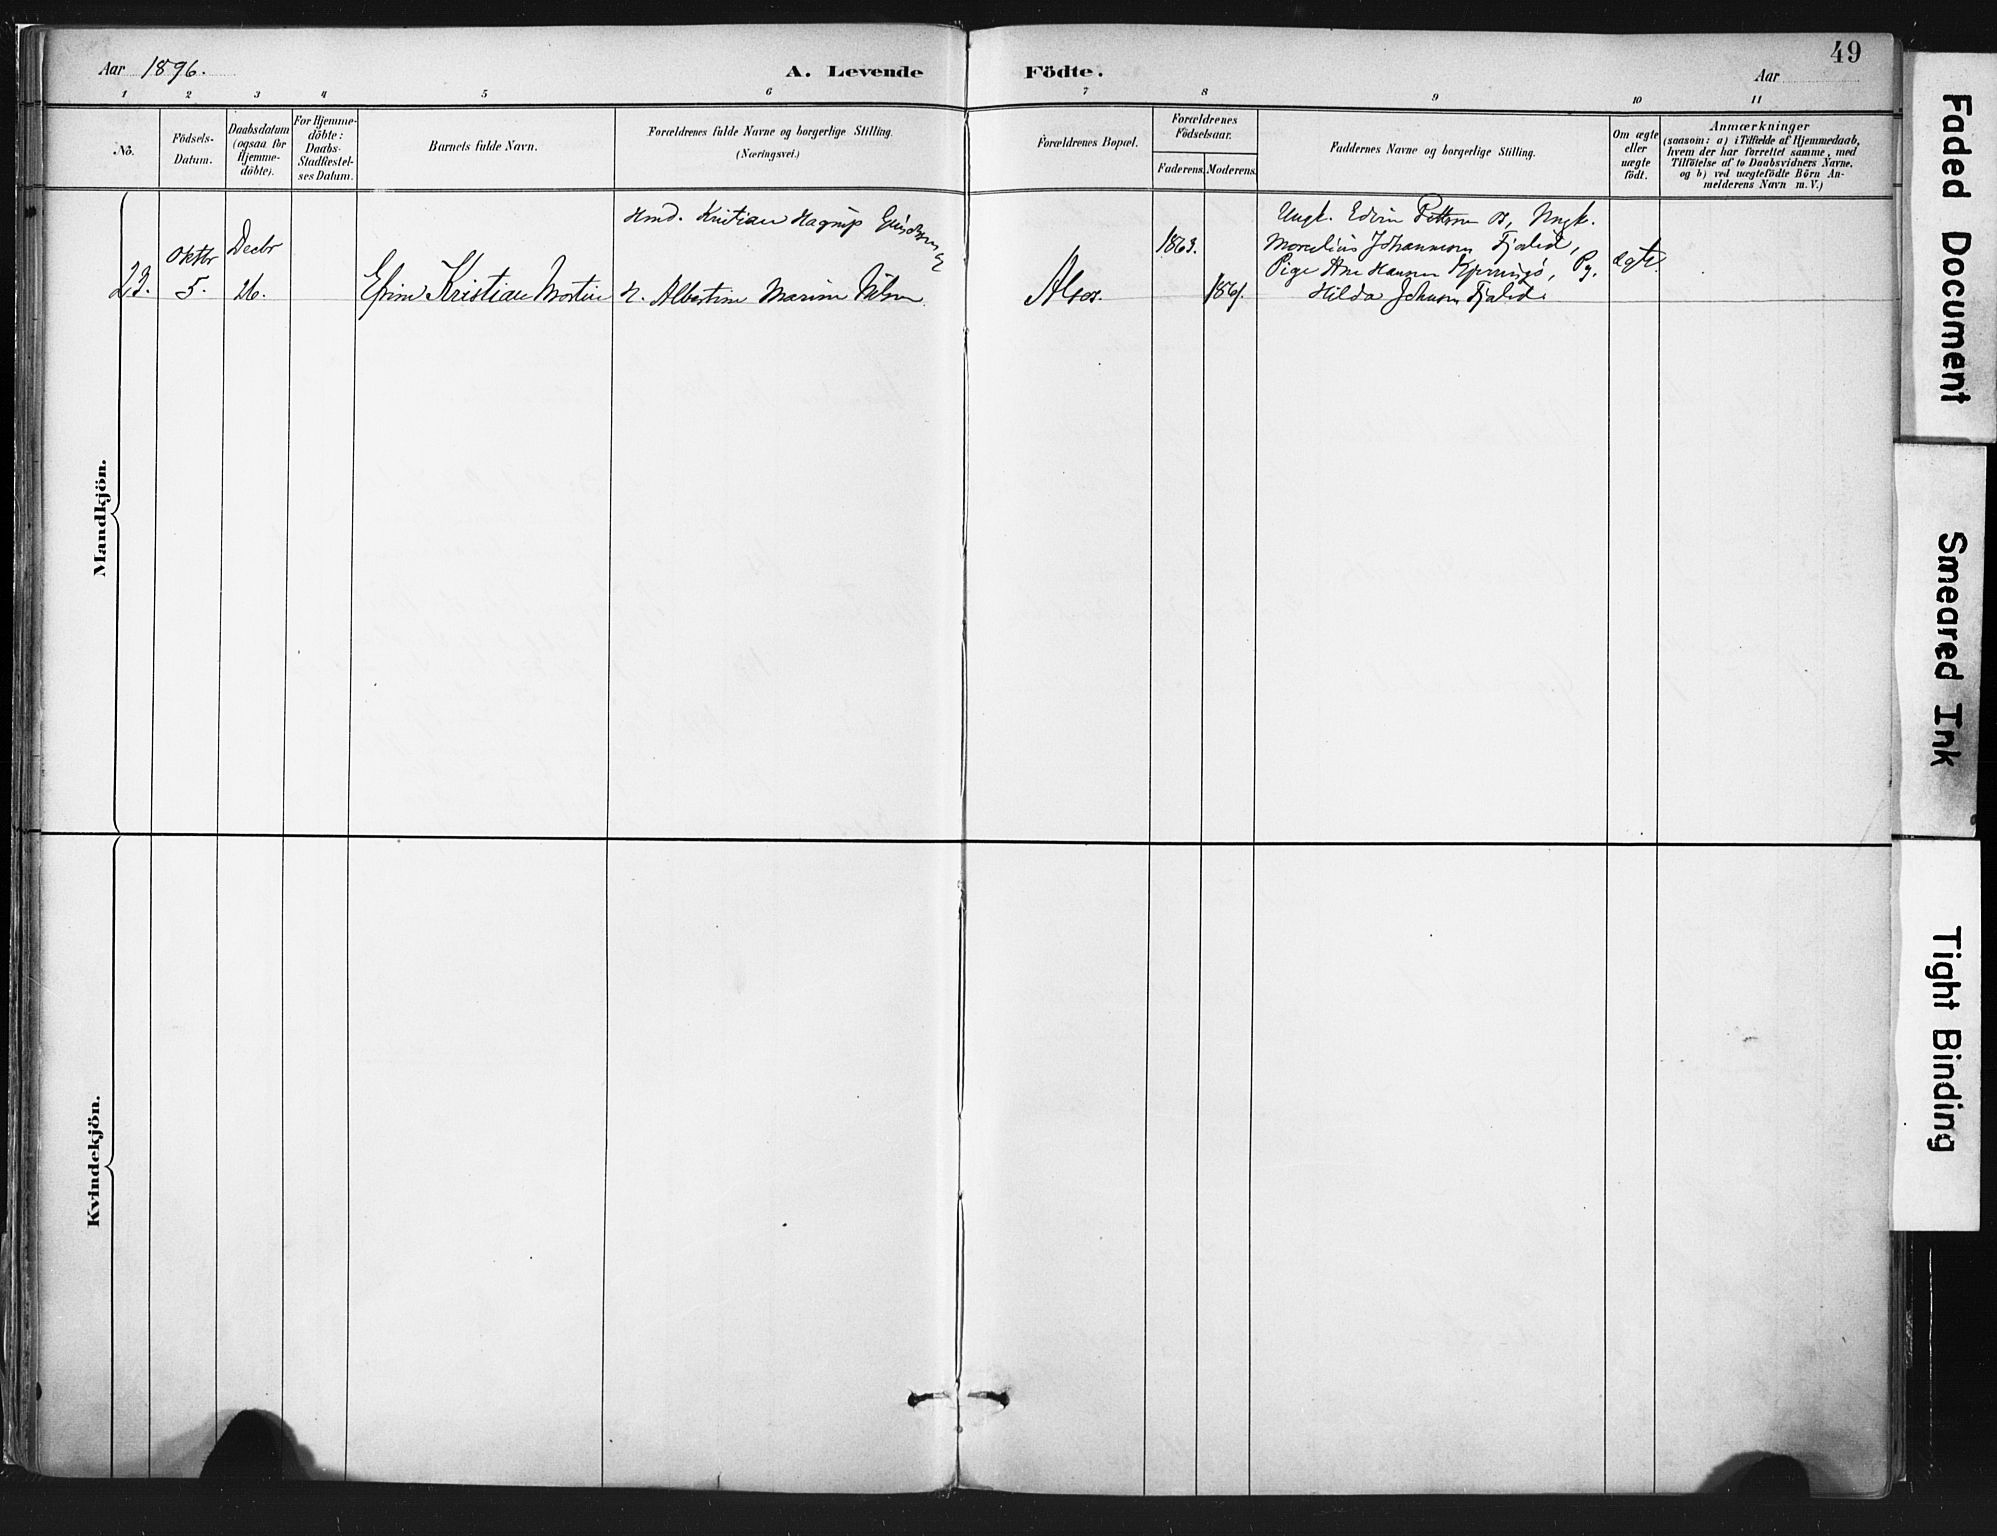 49
Aar 1896.
A. Levende Födte.
Aar
1 2 3 4 5 6 7 8 9 10 11
No.
Födsels-
Datum.
Daabsdatum
(ogsaa for
Hjemme-
döbte).
For Hjemme-
döbte:
Daabs-
Stadfæstel-
ses Datum.
Barnets fulde Navn.
Forældrenes fulde Navne og borgerlige Stilling.
(Næringsvei.)
Forældrenes Bopæl.
Forældrenes
Födselsaar.
Faderens. Moderens.
Faddernes Navne og borgerlige Stilling.
Om ægte
eller
uægte
födt.
Anmærkninger
(saasom: a) i Tilfælde af Hjemmedaab,
hvem der har forrettet samme, med
Tilföielse af to Daabsvidners Navne,
og b) ved uægtefödte Börn An-
melderens Navn m. V.)
Mandkjön.
23.
Oktbr
5.
Decbr
26.
Kristian Martin
Kristian Hagrup
H. Albertine Marine Nilsen
Alsos.
1863.
1861.
Ungk. Edvin Pettersen Os, Ungk.
Marcelius Johannesen Fjalid,
Pige Ane Hansen Kjerringö, Pg.
Hilda Johnsen Fjalid.
ægte.
Kvindekjön.
Faded Document
Smeared Ink
Tight Binding